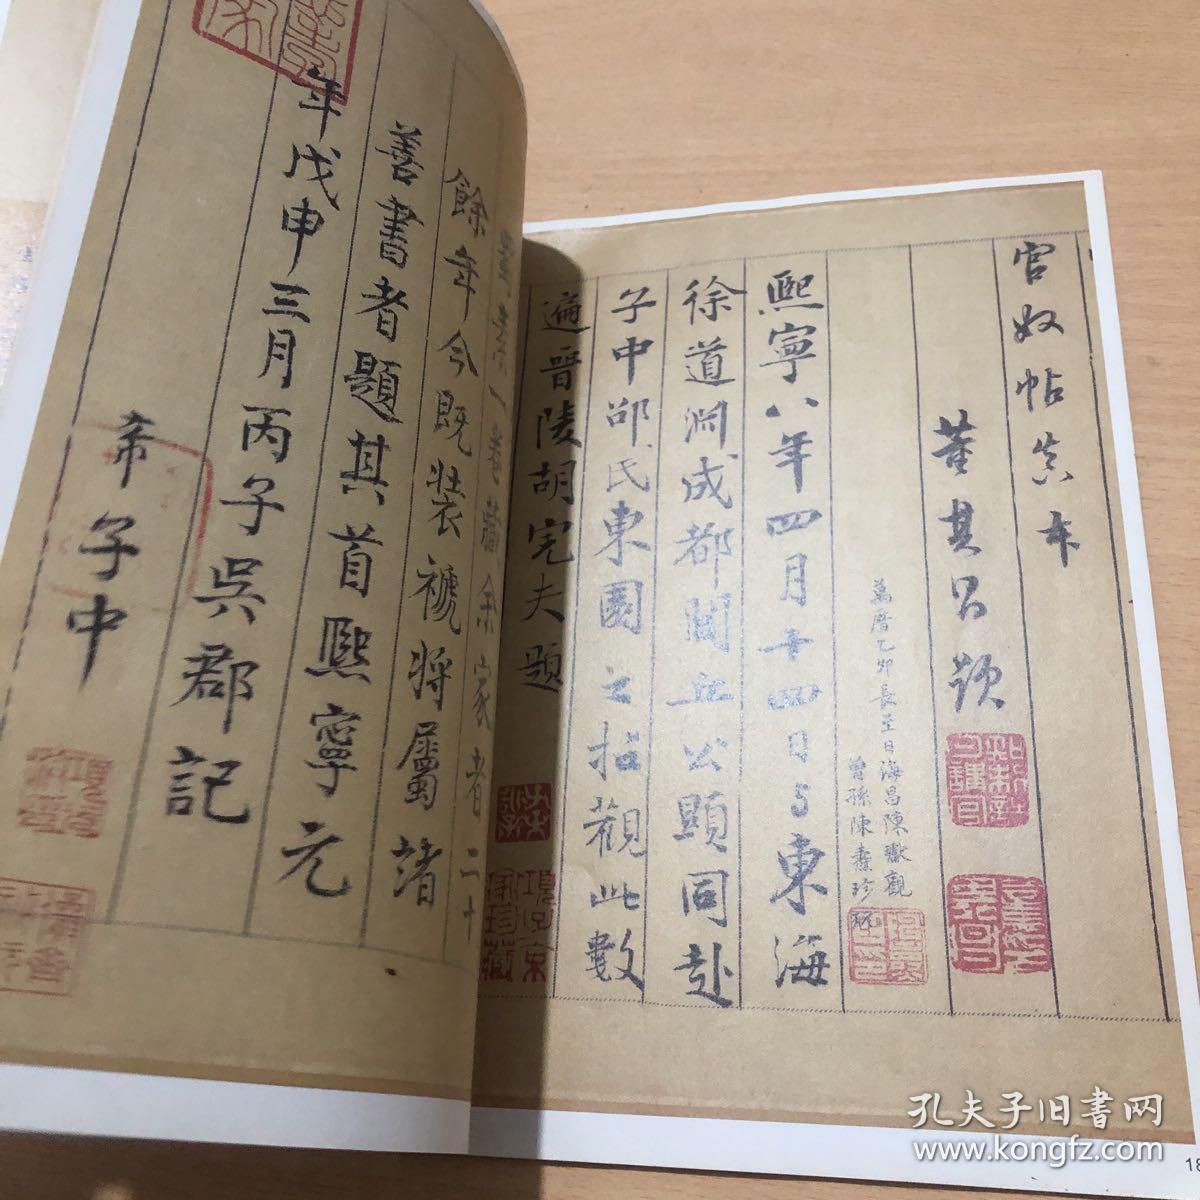 官奴帖真本
董其昌跋
萬曆乙卯長至日海昌陳瓛觀
曾孫陳熹珍
熙寧八年四月十四日与東海
徐道淵成都閭丘公顯同赴
子中邵氏東園之招觀此數
遍晋陵胡完夫題
一卷藏余家者二十
餘年今既装褫将屬諸
善書者題其首熙寧元
年戊申三月丙子吳郡記
希子中
孔夫子旧书网
www.kongfz.com
18